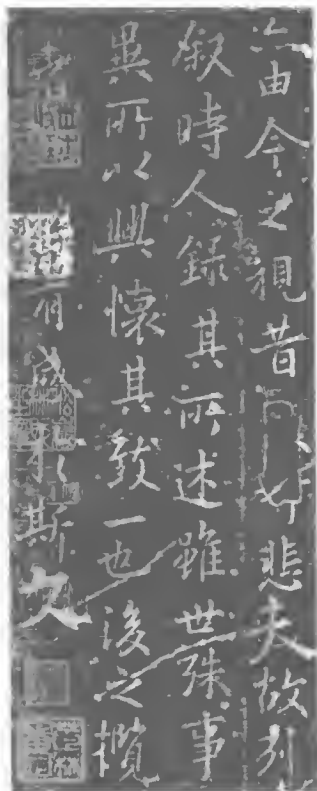 亦由今之視昔悲夫故列
叙時人錄其所述雖世殊事
異所以興懷其致一也後之攬
者有感於斯文